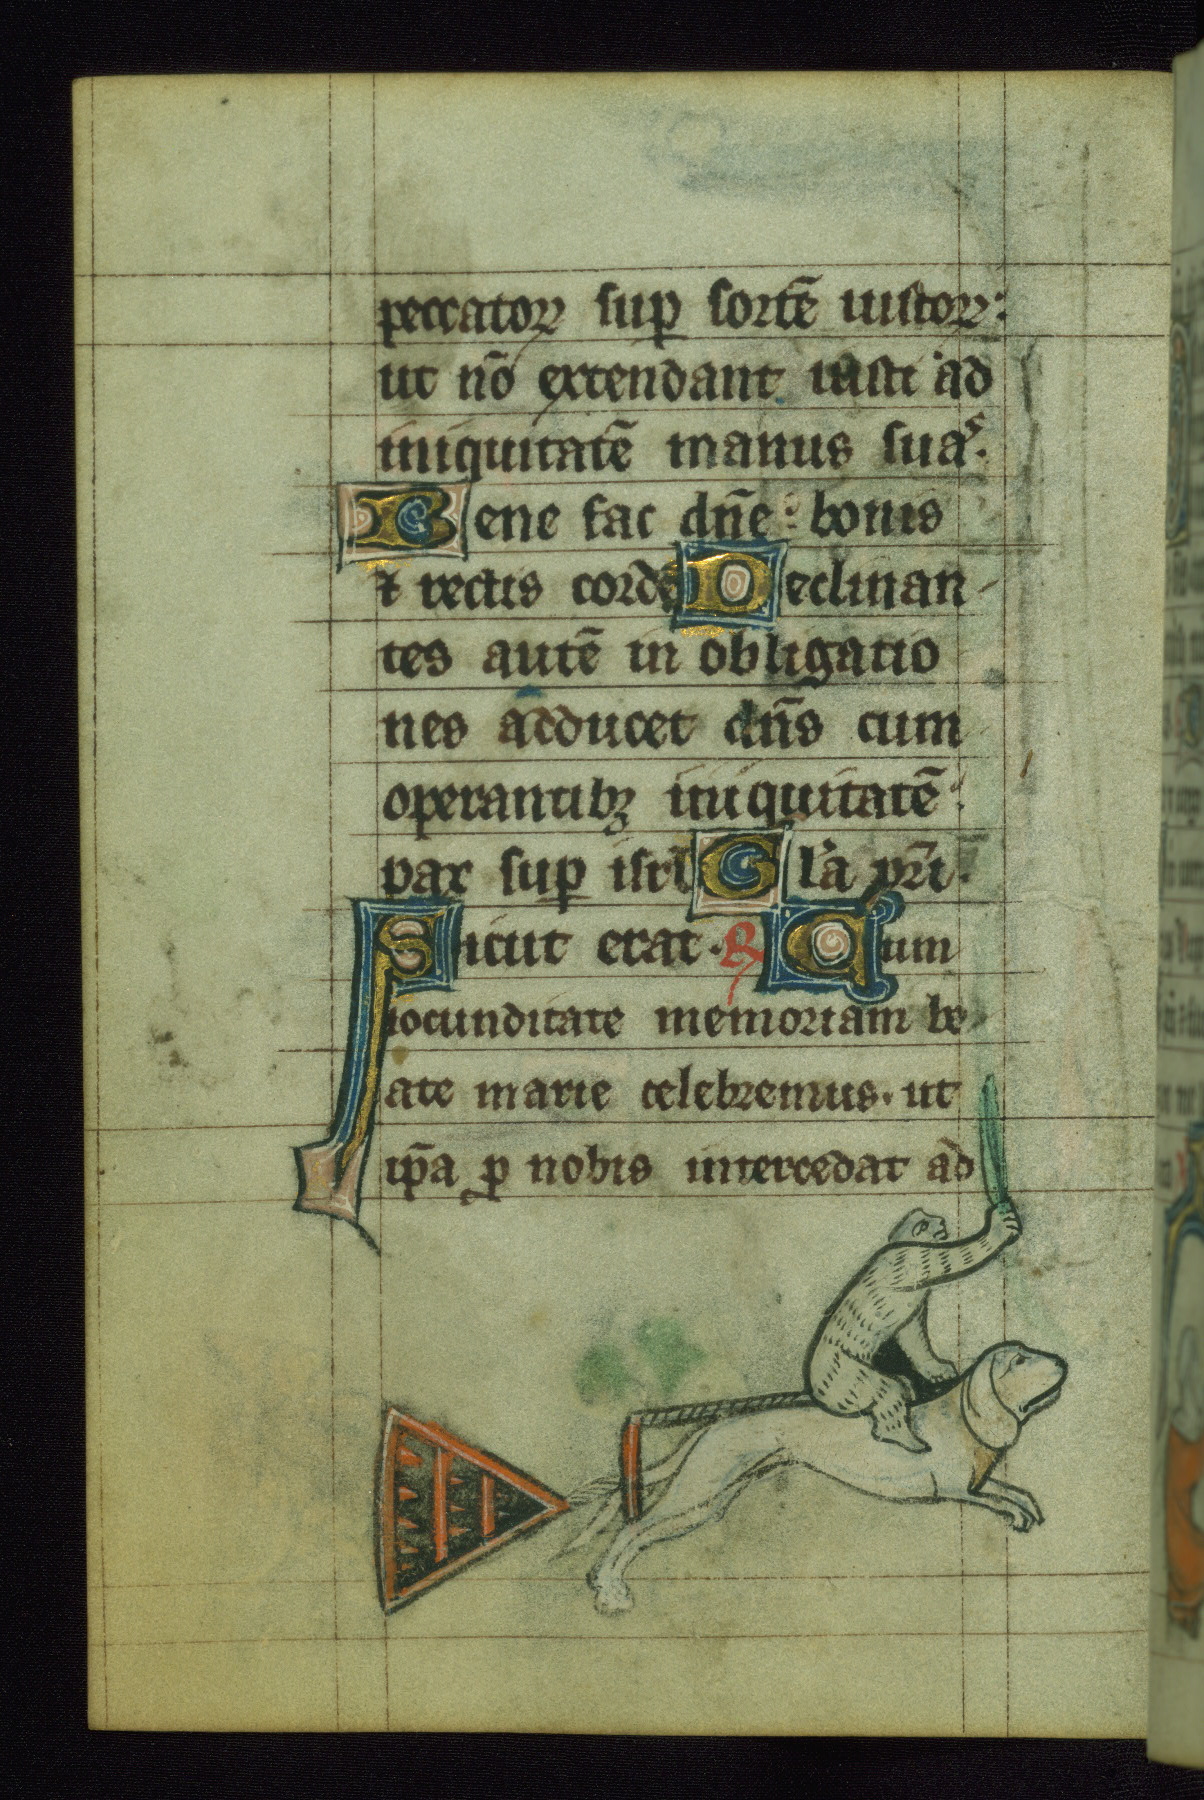 peccatoꝝ suꝑ sortē iustoꝝ:
ut nō extendant iusti ad
iniquitatē manus suas.
Bene fac dn̄e: bonis
⁊ rectis corde Declinan
tes autē in obligatio
nes adducet dn̄s cum
operantibꝫ iniquitatē:
pax suꝑ isrl̄ Gl'a pr̄i.
Sicut erat. R Cum
iocunditate memoriam be
ate marie celebremus. ut
ip̄a ꝓ nobis intercedat ad